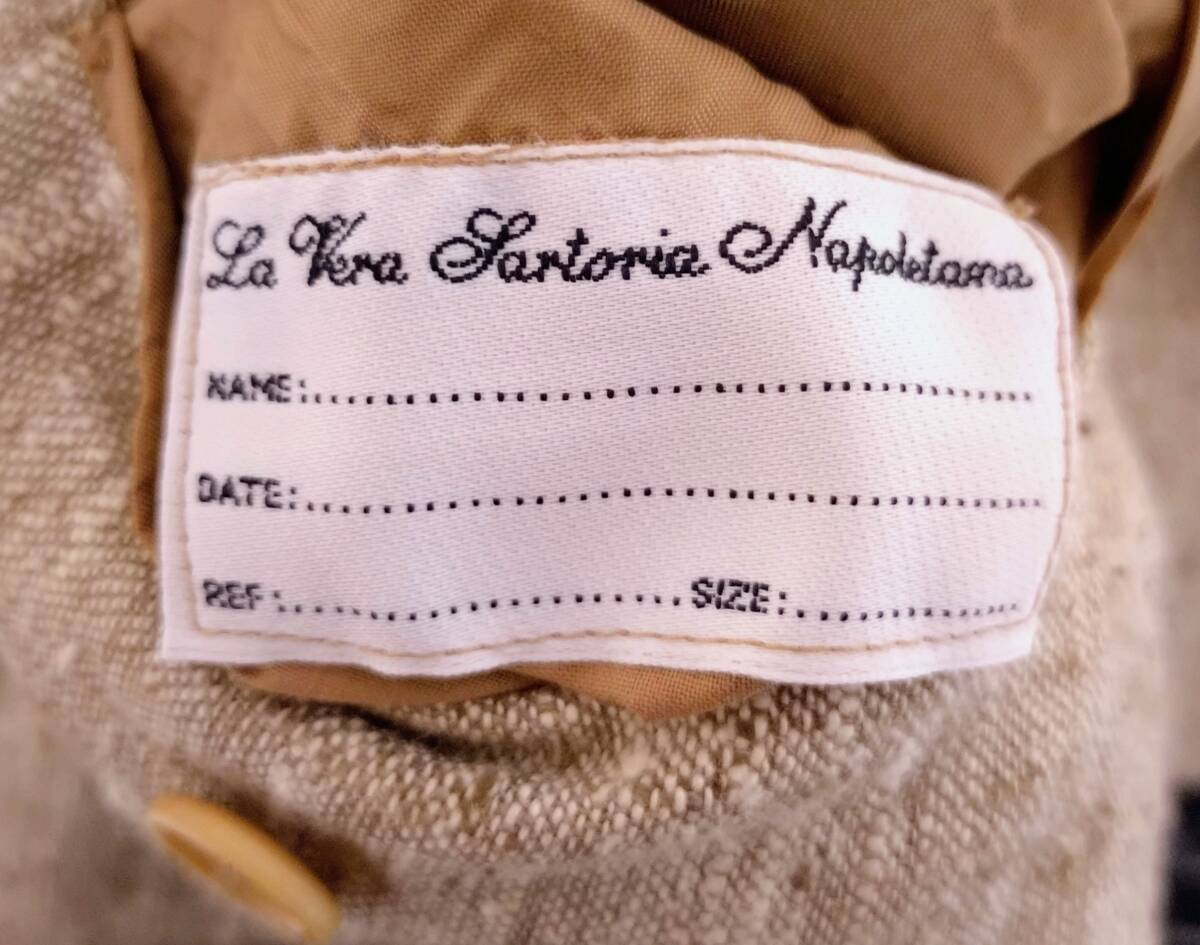 La Vera Sartoria Napoletana
NAME:........................................
DATE:........................................
REF:....................SIZE:.............